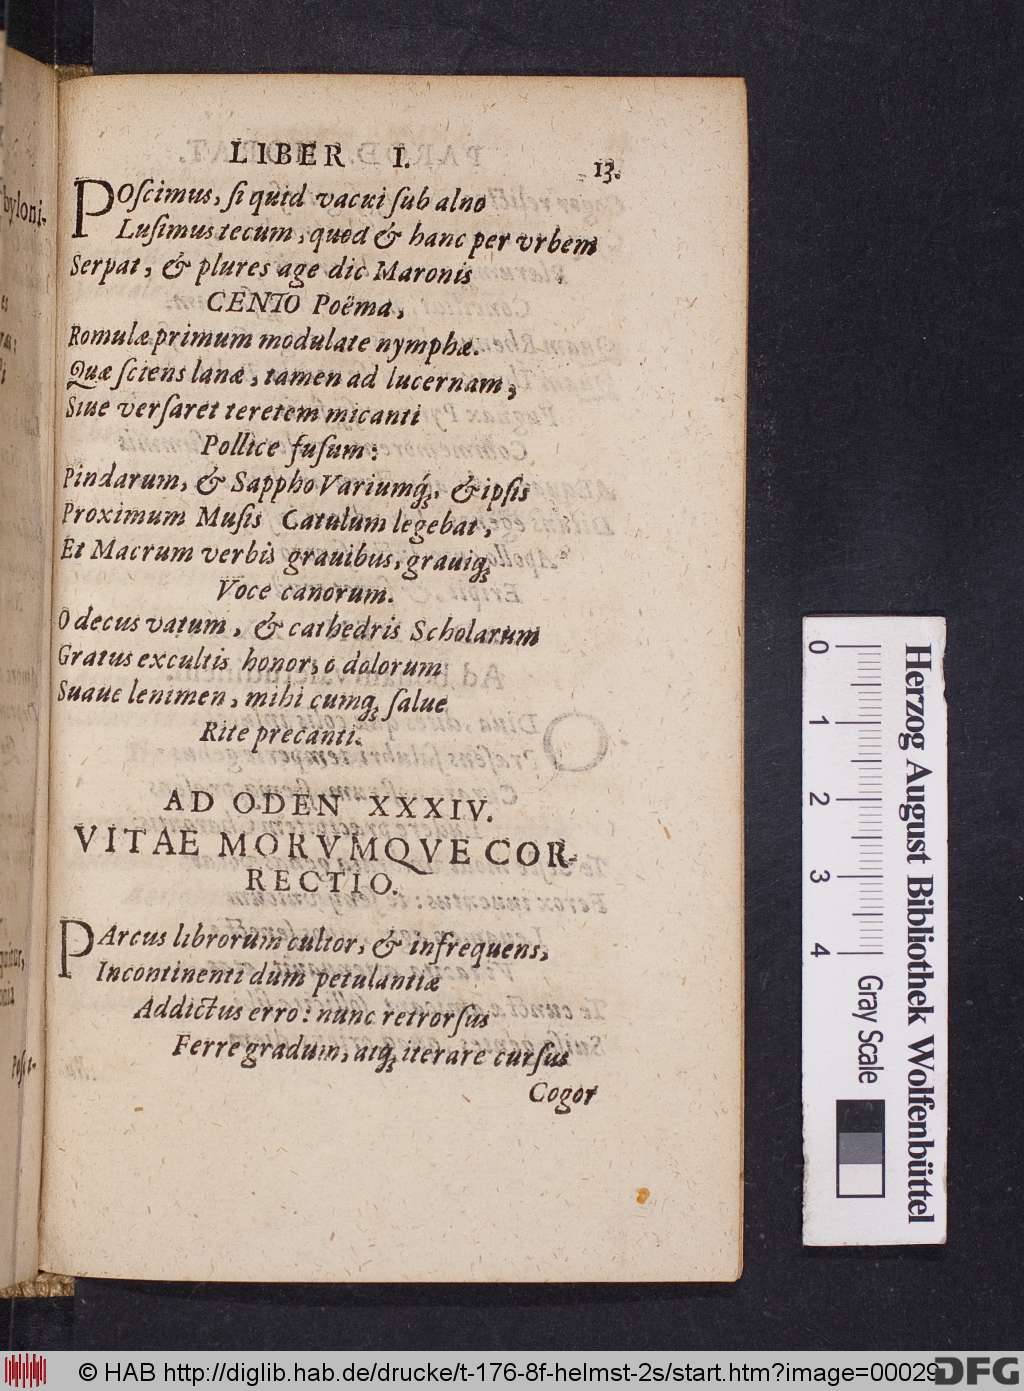 LIBER I. 13.
POſcimus, ſi quid vacui ſub alno
Luſimus tecum, quod & hanc per vrbem
Serpat, & plures age dic Maronis
CENTO Poëma,
Romulæ primum modulate nymphæ.
Quæ ſciens lanæ, tamen ad lucernam,
Siue verſaret teretem micanti
Pollice fuſum:
Pindarum, & Sappho Variumq́ꝫ, & ipſis
Proximum Muſis Catulum legebat,
Et Macrum verbis grauibus, grauiqꝫ
Voce canorum.
O decus vatum, & cathedris Scholarum
Gratus excultis honor, o dolorum
Suaue lenimen, mihi cumqꝫ ſalue
Rite precanti.
AD ODEN XXXIV.
VITAE MORVMQVE COR-
RECTIO.
PArcus librorum cultor, & infrequens,
Incontinenti dum petulantiæ
Addictus erro: nunc retrorſus
Ferre gradum, atqꝫ iterare curſus
Cogor
byloni-
Poſci-
Herzog August Bibliothek Wolfenbüttel
0 1 2 3 4
Gray Scale
© HAB http://diglib.hab.de/drucke/t-176-8f-helmst-2s/start.htm?image=00029
DFG